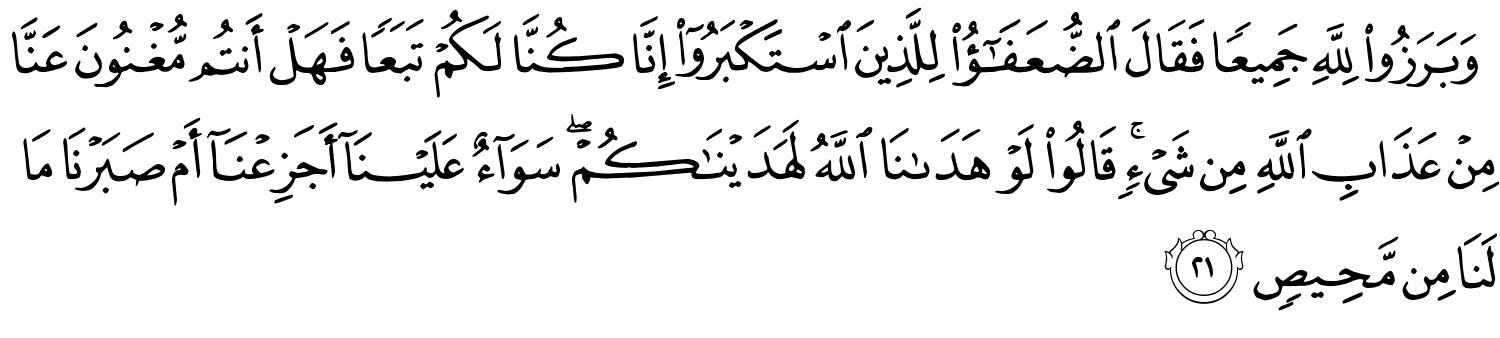 وَبَرَزُواْ لِلَّهِ جَمِيعٗا فَقَالَ ٱلضُّعَفَـٰٓؤُاْ لِلَّذِينَ ٱسۡتَكۡبَرُوٓاْ إِنَّا كُنَّا لَكُمۡ تَبَعٗا فَهَلۡ أَنتُم مُّغۡنُونَ عَنَّا
مِنۡ عَذَابِ ٱللَّهِ مِن شَيۡءٖۚ قَالُواْ لَوۡ هَدَىٰنَا ٱللَّهُ لَهَدَيۡنَٰكُمۡۖ سَوَآءٌ عَلَيۡنَآ أَجَزِعۡنَآ أَمۡ صَبَرۡنَا مَا
لَنَا مِن مَّحِيصٖ ٢١